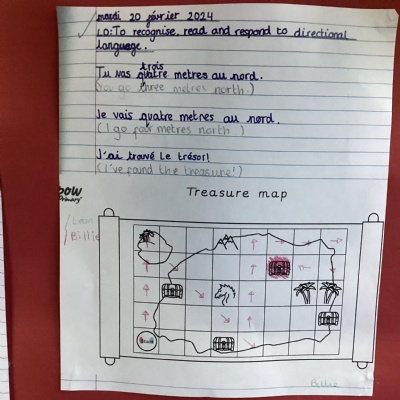 mardi 20 février 2024
LO: To recognise, read and respond to directional
language.
trois
Tu vas quatre metres au nord.
(You go three metres north.)
Je vais quatre metres au nord.
(I go four metres north)
J'ai trouvé le trésor!
(I've found the treasure!)
bow
Primary
Treasure map
Billie
Billie